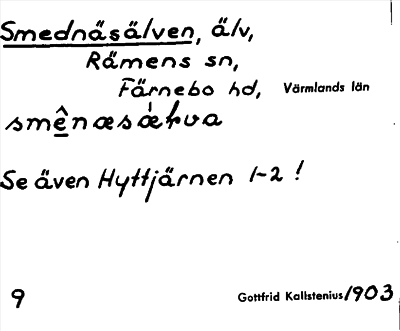 Smednäsälven, älv,
Rämens sn,
Färnebo hd, Värmlands län
Se även Hyttjärnen 1-2 !
9 Gottfrid Kallstenius 1903